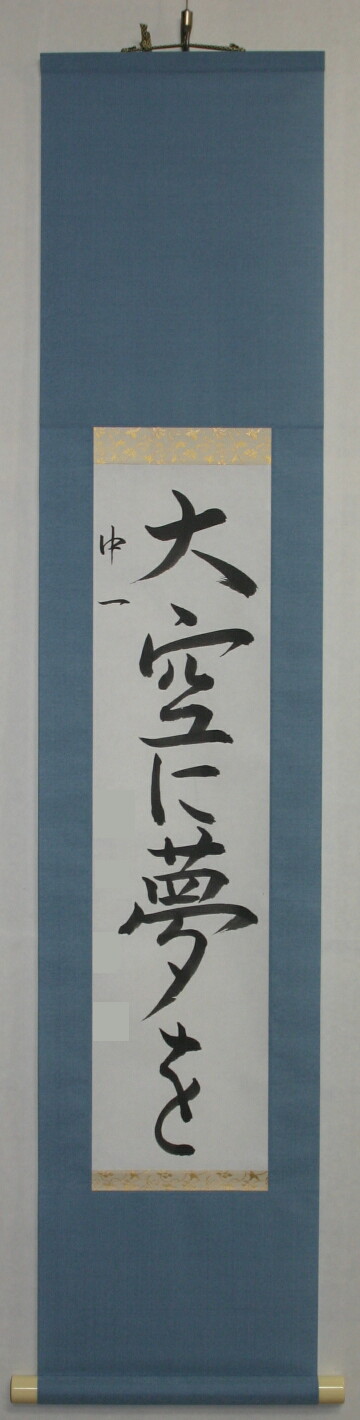 大空に夢を
中一